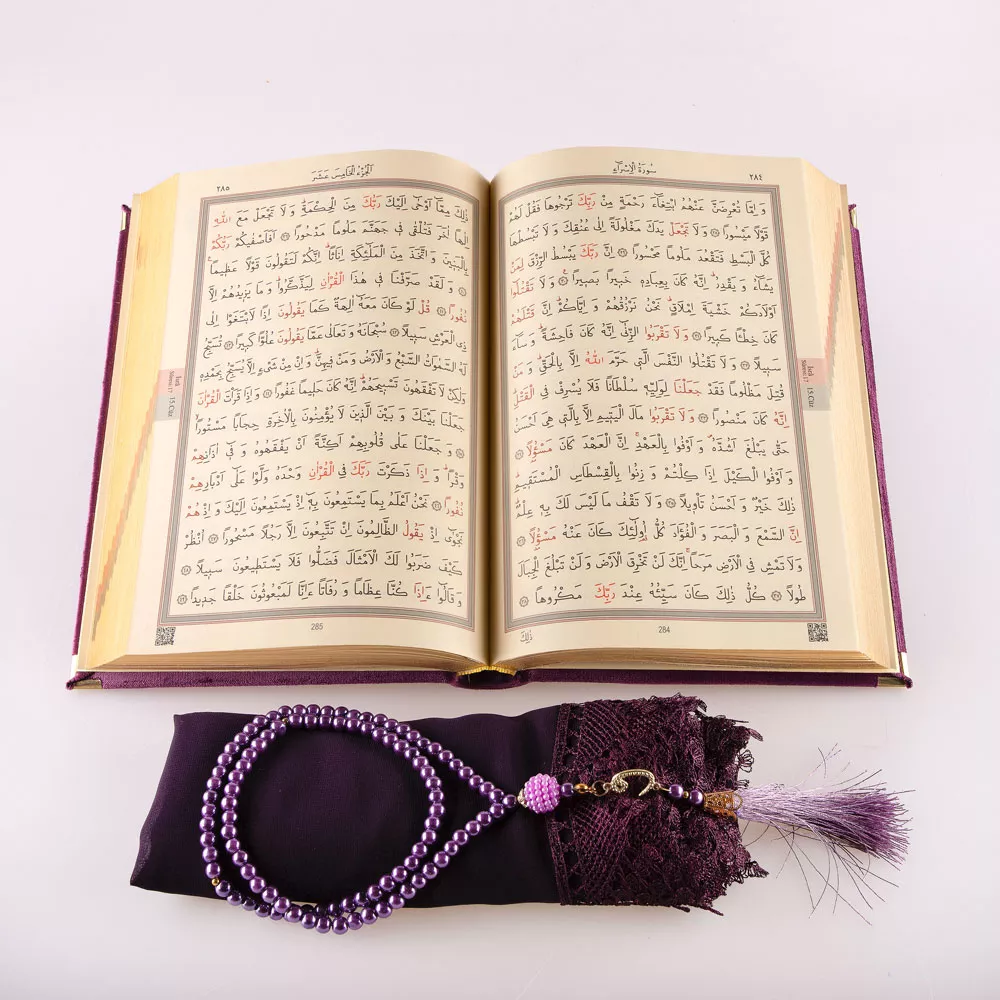 سُورَةُ الْاِسْرَاءِ
٢٨٤
وَ اِمَّا تُعْرِضَنَّ عَنْهُمُ ابْتِغَٓاءَ رَحْمَةٍ مِنْ رَبِّكَ تَرْجُوهَا فَقُلْ لَهُمْ
قَوْلًا مَيْسُورًا ﴿٢٨﴾ وَلَا تَجْعَلْ يَدَكَ مَغْلُولَةً اِلٰى عُنُقِكَ وَلَا تَبْسُطْهَا
كُلَّ الْبَسْطِ فَتَقْعُدَ مَلُومًا مَحْسُورًا ﴿٢٩﴾ اِنَّ رَبَّكَ يَبْسُطُ الرِّزْقَ لِمَنْ
يَشَٓاءُ وَ يَقْدِرُ اِنَّهُ كَانَ بِعِبَادِهِ خَبِيرًا بَصِيرًا ﴿٣٠﴾ وَ لَا تَقْتُلُٓوا
اَوْلَادَكُمْ خَشْيَةَ اِمْلَاقٍ نَحْنُ نَرْزُقُهُمْ وَ اِيَّاكُمْ اِنَّ قَتْلَهُمْ
كَانَ خِطْـًٔا كَبِيرًا ﴿٣١﴾ وَ لَا تَقْرَبُوا الزِّنٰٓى اِنَّهُ كَانَ فَاحِشَةً وَ سَٓاءَ
سَبِيلًا ﴿٣٢﴾ وَ لَا تَقْتُلُوا النَّفْسَ الَّتِي حَرَّمَ اللّٰهُ اِلَّا بِالْحَقِّ وَ مَنْ
قُتِلَ مَظْلُومًا فَقَدْ جَعَلْنَا لِوَلِيِّهِ سُلْطَانًا فَلَا يُسْرِفْ فِي الْقَتْلِ
اِنَّهُ كَانَ مَنْصُورًا ﴿٣٣﴾ وَ لَا تَقْرَبُوا مَالَ الْيَتِيمِ اِلَّا بِالَّتِي هِيَ اَحْسَنُ
حَتّٰى يَبْلُغَ اَشُدَّهُ وَ اَوْفُوا بِالْعَهْدِ اِنَّ الْعَهْدَ كَانَ مَسْؤُلًا ﴿٣٤﴾
وَ اَوْفُوا الْكَيْلَ اِذَا كِلْتُمْ وَ زِنُوا بِالْقِسْطَاسِ الْمُسْتَقِيمِ
ذٰلِكَ خَيْرٌ وَ اَحْسَنُ تَأْوِيلًا ﴿٣٥﴾ وَ لَا تَقْفُ مَا لَيْسَ لَكَ بِهِ عِلْمٌ
اِنَّ السَّمْعَ وَ الْبَصَرَ وَ الْفُؤَادَ كُلُّ اُولٰٓئِكَ كَانَ عَنْهُ مَسْؤُلًا ﴿٣٦﴾
وَلَا تَمْشِ فِي الْاَرْضِ مَرَحًا اِنَّكَ لَنْ تَخْرِقَ الْاَرْضَ وَ لَنْ تَبْلُغَ الْجِبَالَ
طُولًا ﴿٣٧﴾ كُلُّ ذٰلِكَ كَانَ سَيِّئُهُ عِنْدَ رَبِّكَ مَكْرُوهًا ﴿٣٨﴾
284
ذٰلِكَ
15.Cüz
اَلْجُزْءُ الْخَامِسَ عَشَرَ
٢٨٥
ذٰلِكَ مِمَّٓا اَوْحٰٓى اِلَيْكَ رَبُّكَ مِنَ الْحِكْمَةِ وَ لَا تَجْعَلْ مَعَ اللّٰهِ
اِلٰهًا اٰخَرَ فَتُلْقٰى فِي جَهَنَّمَ مَلُومًا مَدْحُورًا ﴿٣٩﴾ اَفَاَصْفٰيكُمْ رَبُّكُمْ
بِالْبَنِينَ وَ اتَّخَذَ مِنَ الْمَلٰٓئِكَةِ اِنَاثًا اِنَّكُمْ لَتَقُولُونَ قَوْلًا عَظِيمًا
﴿٤٠﴾ وَ لَقَدْ صَرَّفْنَا فِي هٰذَا الْقُرْاٰنِ لِيَذَّكَّرُوا وَ مَا يَزِيدُهُمْ اِلَّا
نُفُورًا ﴿٤١﴾ قُلْ لَوْ كَانَ مَعَهُٓ اٰلِهَةٌ كَمَا يَقُولُونَ اِذًا لَابْتَغَوْا اِلٰى
ذِي الْعَرْشِ سَبِيلًا ﴿٤٢﴾ سُبْحَانَهُ وَ تَعَالٰى عَمَّا يَقُولُونَ عُلُوًّا كَبِيرًا ﴿٤٣﴾ تُسَبِّحُ
لَهُ السَّمٰوَاتُ السَّبْعُ وَ الْاَرْضُ وَ مَنْ فِيهِنَّ وَ اِنْ مِنْ شَيْءٍ اِلَّا يُسَبِّحُ بِحَمْدِهِ
وَلٰكِنْ لَا تَفْقَهُونَ تَسْبِيحَهُمْ اِنَّهُ كَانَ حَلِيمًا غَفُورًا ﴿٤٤﴾ وَ اِذَا قَرَأْتَ الْقُرْاٰنَ
جَعَلْنَا بَيْنَكَ وَ بَيْنَ الَّذِينَ لَا يُؤْمِنُونَ بِالْاٰخِرَةِ حِجَابًا مَسْتُورًا
﴿٤٥﴾ وَ جَعَلْنَا عَلٰى قُلُوبِهِمْ اَكِنَّةً اَنْ يَفْقَهُوهُ وَ فِٓي اٰذَانِهِمْ
وَقْرًا وَ اِذَا ذَكَرْتَ رَبَّكَ فِي الْقُرْاٰنِ وَحْدَهُ وَلَّوْا عَلٰٓى اَدْبَارِهِمْ
نُفُورًا ﴿٤٦﴾ نَحْنُ اَعْلَمُ بِمَا يَسْتَمِعُونَ بِهِ اِذْ يَسْتَمِعُونَ اِلَيْكَ وَ اِذْ هُمْ
نَجْوٰٓى اِذْ يَقُولُ الظَّالِمُونَ اِنْ تَتَّبِعُونَ اِلَّا رَجُلًا مَسْحُورًا ﴿٤٧﴾ اُنْظُرْ
كَيْفَ ضَرَبُوا لَكَ الْاَمْثَالَ فَضَلُّوا فَلَا يَسْتَطِيعُونَ سَبِيلًا ﴿٤٨﴾
وَ قَالُٓوا ءَاِذَا كُنَّا عِظَامًا وَ رُفَاتًا ءَاِنَّا لَمَبْعُوثُونَ خَلْقًا جَدِيدًا ﴿٤٩﴾
285
15.Cüz